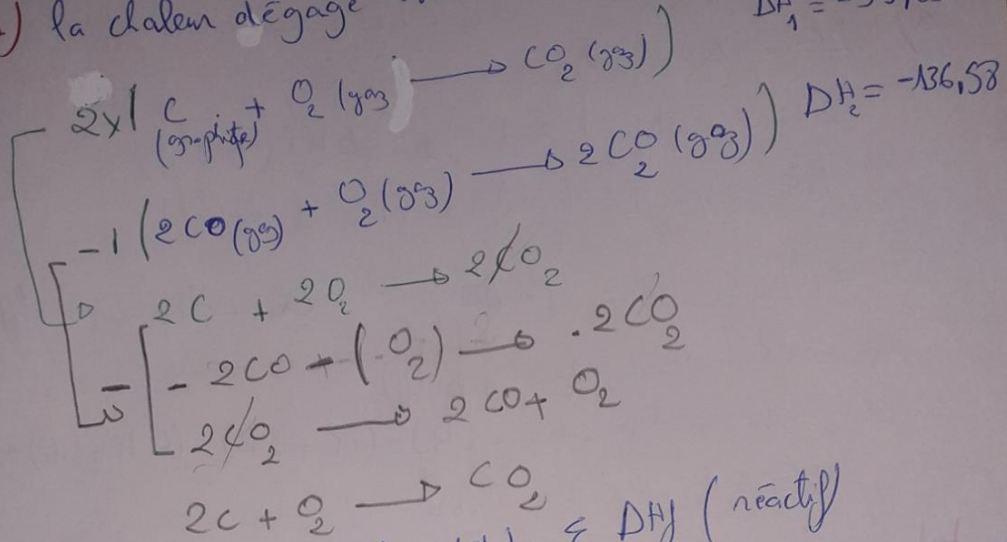 la chaleur dégagé
DH₁ =
2x ( C (graphite) + O₂ (gaz) → CO₂ (gaz) )
-1 ( 2CO (gaz) + O₂ (gaz) → 2CO₂ (gaz) ) DH₂ = -136,58
2C + 2O₂ → 2CO₂
- 2CO - ( O₂ ) → . 2CO₂
2CO₂ → 2CO + O₂
2C + O₂ → CO₂
DHf ( réactif